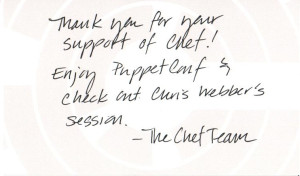 Thank you for your
support of Chef!
Enjoy PuppetConf &
check out Chris Webber's
session.
- The Chef Team